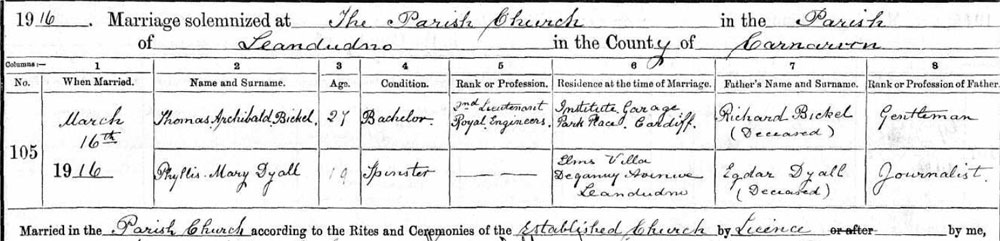 1916. Marriage solemnized at The Parish Church in the Parish
of Leandudno in the County of Carnarvon
Columns:— 1 2 3 4 5 6 7 8
No. When Married. Name and Surname. Age. Condition. Rank or Profession. Residence at the time of Marriage. Father's Name and Surname. Rank or Profession of Father.
105
March
16th
1916
Thomas Archibald Bickel. 27 Bachelor.
2nd Lieutenant
Royal Engineers.
Institute Garage
Park Place. Cardiff.
Richard Bickel
(Deceased)
Gentleman
Phyllis Mary Dyall 19 Spinster — —
Elms Villa
Deganwy Avenue
Leandudno
Egdar Dyall
(Deceased)
Journalist.
Married in the Parish Church according to the Rites and Ceremonies of the Established Church by Licence or after by me,